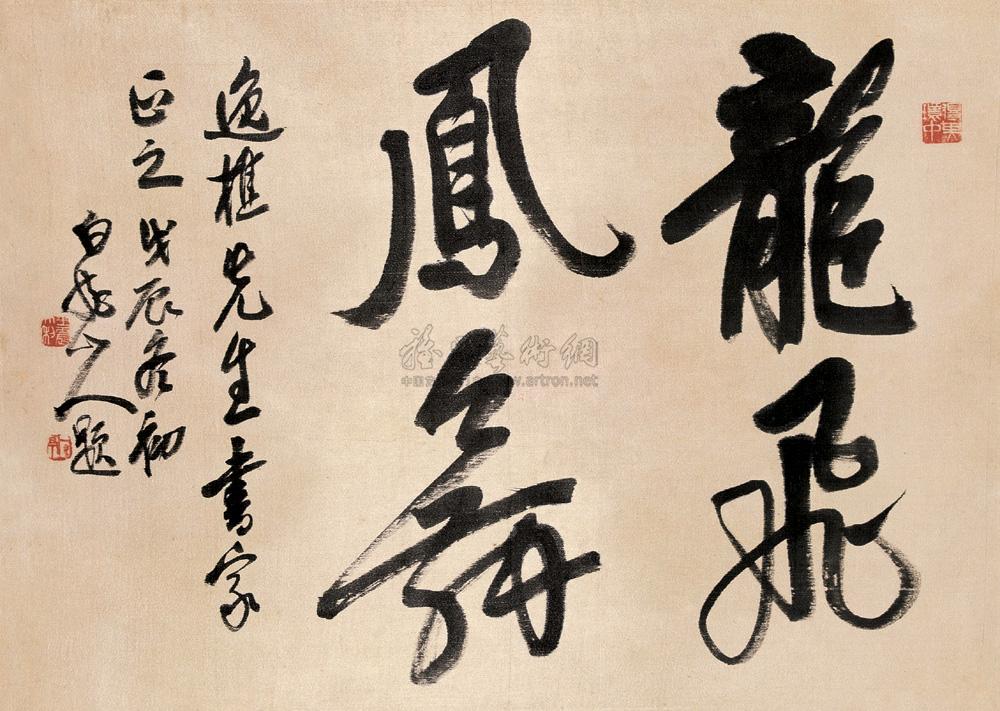 龍飛
鳳舞
逸樵先生書家
正之 戊辰冬初
白龍山人題
中国
www.artron.net